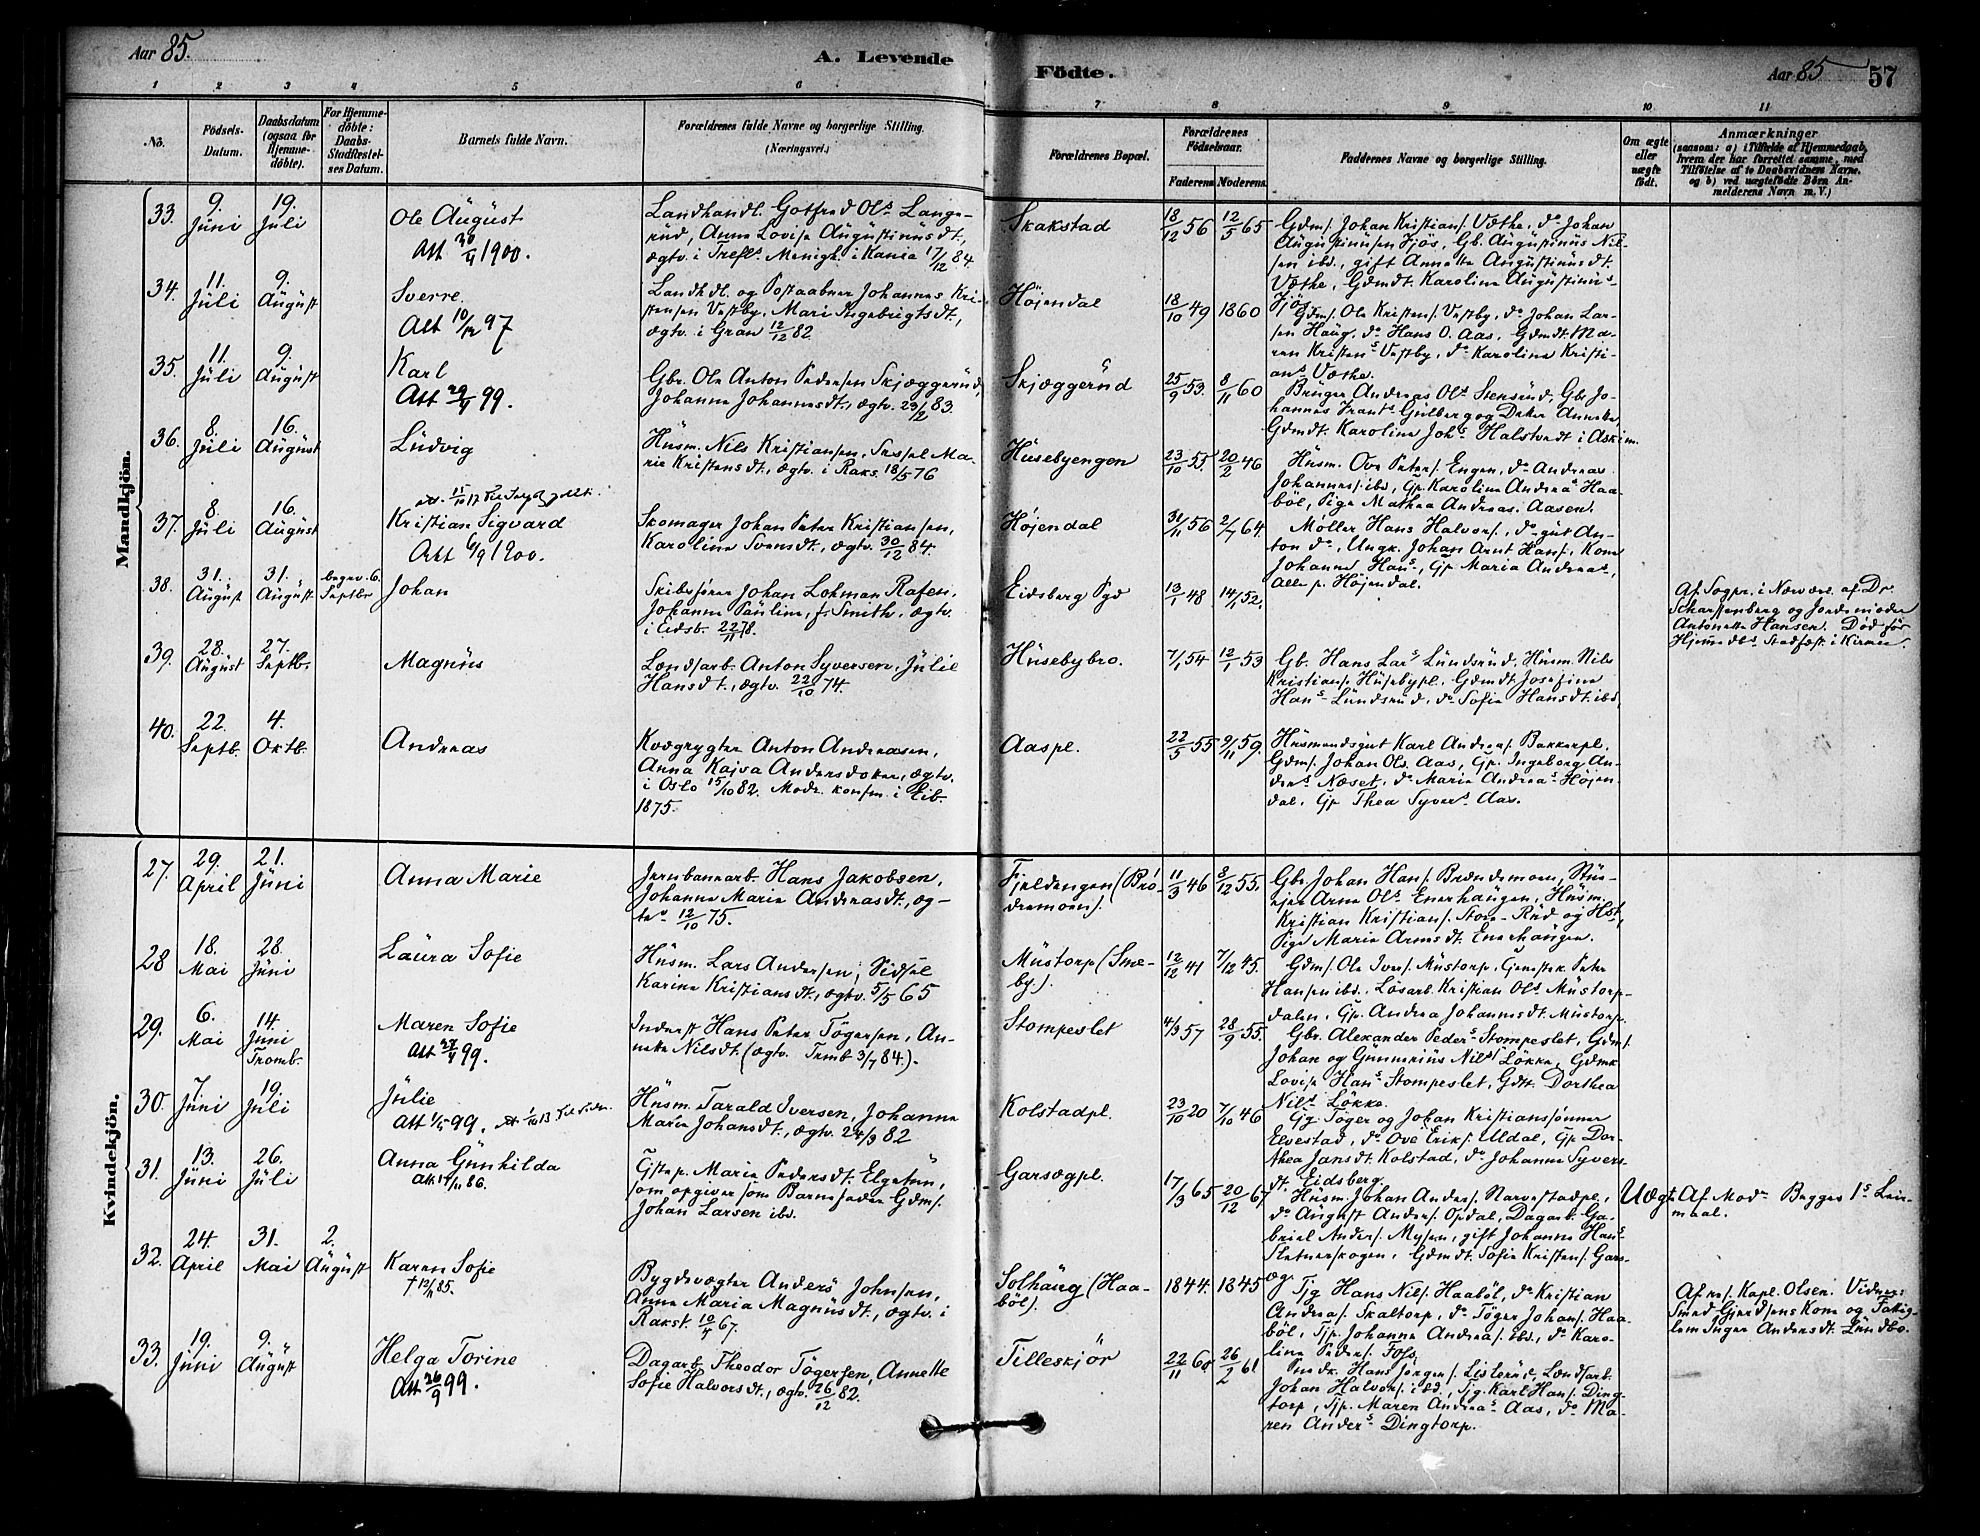 Aar 85.
A. Levende
Födte.
Aar 85
57
1 2 3 4 5 6
7 8 9 10 11
No.
Födsels-
Datum.
Daabsdatum
(ogsaa for
Hjemme-
döbte).
For Hjemme-
döbte:
Daabs-
Stadfæstel-
ses Datum.
Barnets fulde Navn.
Forældrenes fulde Navne og borgerlige Stilling.
(Næringsvei.)
Forældrenes Bopæl.
Forældrenes
Födselsaar.
Faderens Moderens
Faddernes Navne og borgerlige Stilling.
Om ægte
eller
uægte
født.
Anmærkninger
(saasom: a) i Tilfælde af Hjemmedaab,
hvem der har forrettet samme, med
Tilföielse af to Daabsvidners Navne.
og b) ved uægtefödte Börn An-
melderens Navn m. V.)
Mandkjön.
33. 9. Juni 19. Juli
Ole August
Att 30/4 1900.
Landhandl. Gotfred Ols. Lange-
rud, Anna Lovisa Augustinusdt.,
ægtv. i Trefl. Menigh. i Kania 17/12 84.
Skakstad
18/12 56 12/5 65
Gdm. Johan Kristians. Væthe, do Johan
Augustinusen Fjös, Gb. Augustinus Nil-
sen ibd., gift Annette Augustinusdt.
Væthe, Gdmdt. Karoline Augustinus
Fjös
34. 11. Juli 9. August
Sverre.
Att 10/12 97
Landhdl. og Postaabner Johannes Kri-
stensen Vestby, Mari Ingebrigtsdt.,
ægtv. i Gran 12/12 82.
Höjendal
18/10 49 1860
Gdm. Ole Kristens. Vestby, do Johan Lar-
sen Haug, do Hans O. Aas, Gdmdt. Ma-
ren Kristens Vestby, do Karoline Kristi-
ans Væthe.
35. 11. Juli 9. August
Karl
Att 29/4 99.
Gbr. Ole Anton Pedersen Skjæggerud,
Johanne Johannesdt., ægtv. 23/2 83.
Skjæggerud
25/9 53. 8/11 60
Bruger Andreas Ols. Stensrud, Gbr. Jo-
hannes Frants. Gulberg og Datter Annette,
Gdmdt. Karoline Johs. Halstvedt i Askim.
36. 8. Juli 16. August
Ludvig
Husm. Nils Kristiansen, Sessel Ma-
rie Kristensdt., ægtv. i Raks. 18/5 76
Husebyengen
23/10 55. 20/2 46
Husm. Ove Peters. Engen, do Andreas
Johanness. ibd, Gp. Karoline Andreas Haa-
böl, Pige Mathea Andreas. Aasen.
37. 8. Juli 16. August
Kristian Sigvard
Att 6/9 1900.
Skomager Johan Peter Kristiansen,
Karoline Svensdt., ægtv. 30/12 84.
Höjendal
31/11 56 2/7 64.
Möller Hans Halvors., do gut An-
ton do, Ungk. Johan Arnt Hans., Kone
Johanne Hans., Gp. Maria Andreas.,
alle p. Höjendal.
38. 31. August 31. August
begrv. 6. Septbr
Johan
Skibsförer Johan Lohman Rafen,
Johanne Pauline, f. Smith, ægtv.
i Eidsb. 22/11 78.
Eidsberg Pgd
13/1 48 14/1 52.
Af Sogpr. i Nærvær. af Dr.
Scharffenberg og Jordemoder
Antonette Hansen. Död för
Hjemmedbs. Stadfæst. i Kirken.
39. 28. August 27. Septbr.
Magnus
Löndsarb. Anton Syversen, Julie
Hansdt., ægtv. 22/10 74.
Husebybro.
7/1 54 12/1 53
Gb. Hans Lars Lundsrud, Husm. Nils
Kristians. Husebypl., Gdmdt. Josefine
Hans Lundsrud, do Sofie Hansdt. ibd.
40. 22. Septb. 4. Oktb.
Andreas
Kvægrygter Anton Andreasen,
Anna Kajsa Andersdoter, ægtv.
i Oslo 15/10 82. Modr. konfm. i Eib.
1875.
Aaspl.
22/5 55 9/11 59.
Husmandsgut Karl Andres. Bakkerpl.,
Gdm. Johan Ols. Aas, Gp. Ingeborg An-
ders. Næset, do Marie Andreas Höjen-
dal, Gp Thea Syvers Aas.
Kvindekjön.
27. 29. April 21. Juni
Anna Marie
Jernbanearb. Hans Jakobsen,
Johanne Marie Andreasdt., æg-
tev. 12/10 75.
Fjeldengen (Brö-
dremoen).
11/3 46 8/12 55.
Gbr Johan Hans. Brændemoen,
Arne Ols. Enerhaugen, Husm.
Kristian Kristians. Store-Rud og Hst,
Pige Marie Arnesdt. Enerhaugen.
28 18. Mai 28. Juni
Laura Sofie
Husm. Lars Andersen, Sidsel
Karine Kristiansdt., ægtv. 5/5 65
Mustorp (Sme-
by).
12/12 41 7/12 45.
Gdm. Ole Ivers. Mustorp, Peter
Hansen ibd. Lösarb. Kristian Ols. Mustorp-
dalen, Gp. Andrea Johannesdt. Mustorp.
29. 6. Mai 14. Juni
Tromb.
Maren Sofie
Att 27/4 99.
Inderst Hans Peter Tögersen, An-
nette Nilsdt. (ægtv. Trmb 3/7 84.).
Stompeslet
4/3 57 28/9 55.
Gbr. Alexander Peders Stompeslet, Gdm.
Johan og Gunnerius Nils Lökke, Gdmk
Lovise Hans Stompeslet, Gdt. Dorthea
Nils Lökke.
30. 7. Juni 19. Juli
Julie
Att 1/5 99.
Husm. Tarald Iversen, Johanne
Marie Johansdt., ægtv. 24/3 82
Kolstadpl.
23/10 20 7/10 46
Gg. Töger og Johan Kristianssönner
Elvestad, do Ove Eriks. Uldal, Gp. Dor-
thea Jansdt. Kolstad, do Johanne Syvers-
dt. Eidsberg.
31. 13. Juni 26. Juli
Anna Gunhilda
Att 17/11 86.
Tjstep. Marie Pedersdt. Elgetun,
som opgiver som Barnefader Gdms.
Johan Larsen ibd.
Garsægpl.
17/3 65 20/12 67
Husm. Johan Anders. Narvestadpl.,
do August Anders. Opdal, Dagarb. Ga-
briel Anders. Mysen, gift Johanne Hans
Sletnerskogen, Gdmdt. Sofie Kristens. Gars-
æg.
Uægt.
Af Modr Begges 1s Leir-
maal.
32. 24. April 31. Mai 2. August
Karen Sofie
† 12/11 85.
Bygdevægter Anders Johnsen,
Anne Maria Magnusdt., ægtv. i
Rakst. 10/4 67.
Solhaug (Haa-
böl).
1844. 1845
Tjg Hans Nils. Haaböl, do Kristian
Andreas. Skaltorp, do Töger Johans. Haa-
böl, Tjp. Johanne Andreas. Ibd., do Karo-
line Peders. Foss.
Af res. Kapl. Olsen. Vidner:
Smed Gjerdsens Kone og Fattig-
lem Inger Andersdt. Lundbo.
33. 19. Juni 9. August
Helga Torine
Att 26/9 99.
Dagarb. Theodor Tögersen, Annette
Sofie Halvorsdt., ægtv. 26/12 82.
Tilleskjör
22/11 60. 26/2 61
Hans Jörgens. Listerud, Löndsarb.
Johan Halvors. ibd., Tjg. Karl Hans. Ding-
torp, Tjp. Maren Andreas Aas, do Ma-
ren Anders Dingtorp.